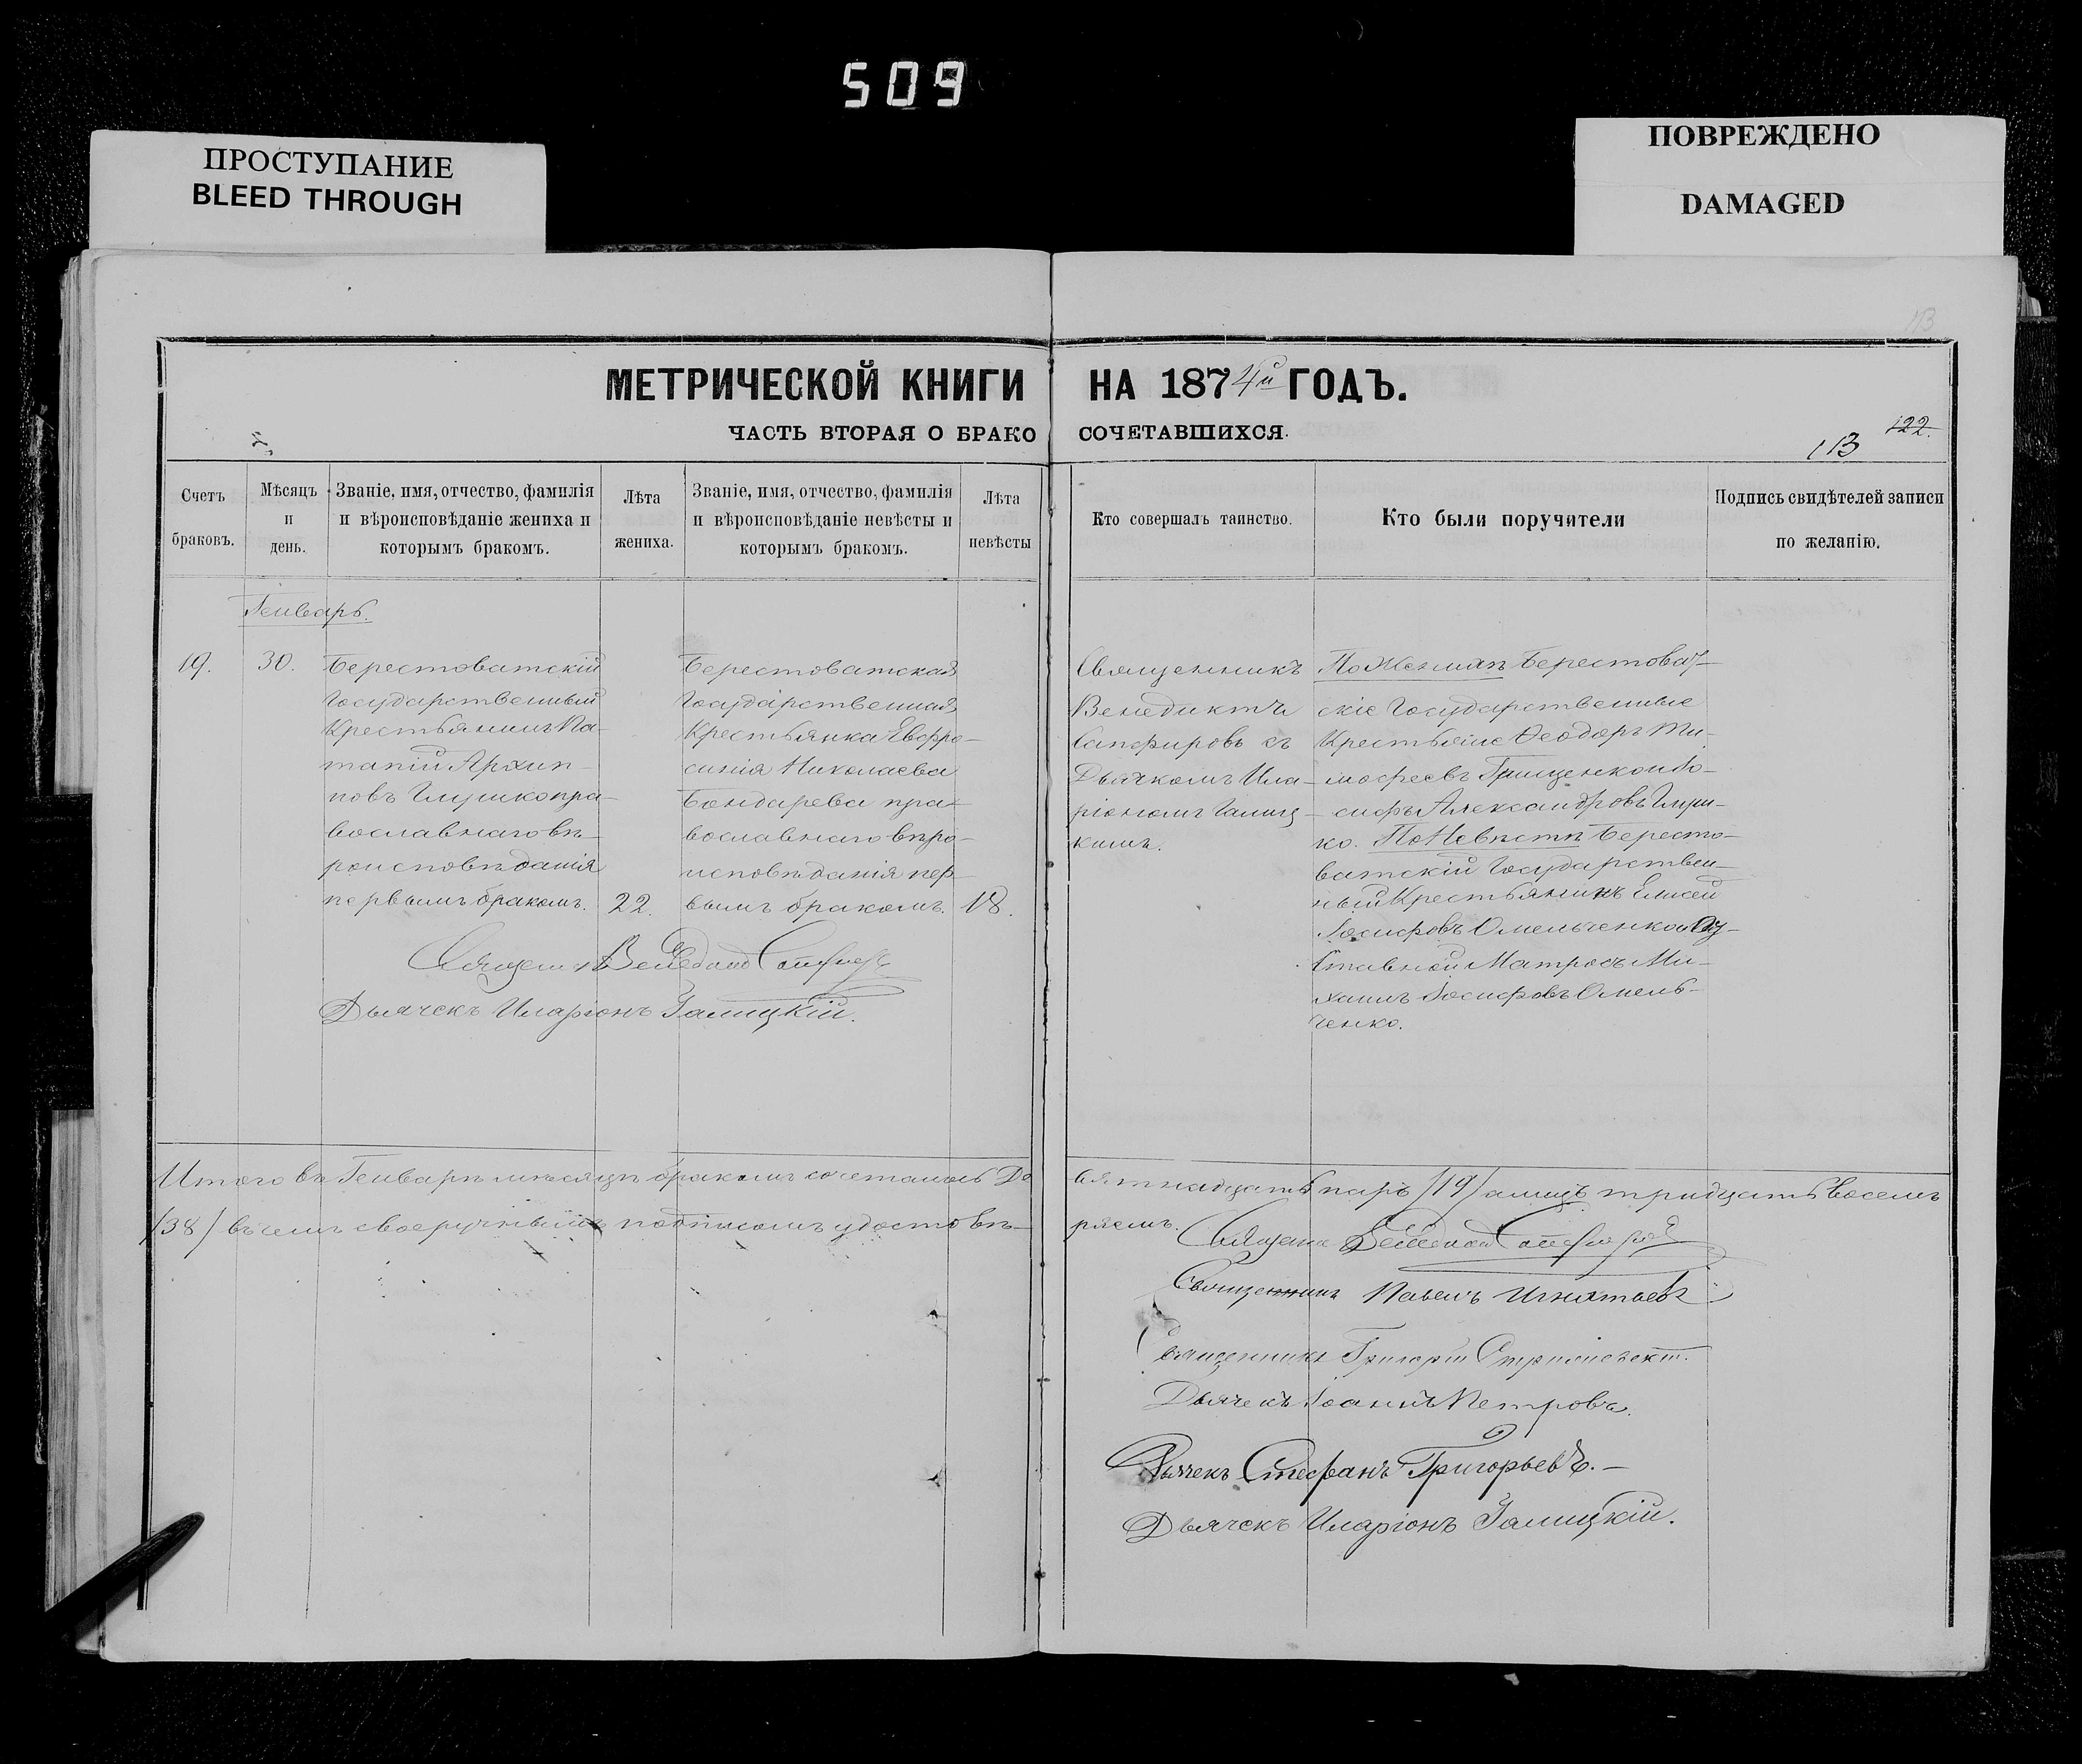 509
ПРОСТУПАНИЕ
BLEED THROUGH
ПОВРЕЖДЕНО
DAMAGED
113
МЕТРИЧЕСКОЙ КНИГИ НА 1874й ГОДЪ.
ЧАСТЬ ВТОРАЯ О БРАКОСОЧЕТАВШИХСЯ.
122.
113
Счетъ
браковъ.
Мѣсяцъ
и
день.
Званіе, имя, отчество, фамилія
и вѣроисповѣданіе жениха и
которымъ бракомъ.
Лѣта
жениха.
Званіе, имя, отчество, фамилія
и вѣроисповѣданіе невѣсты и
которымъ бракомъ.
Лѣта
невѣсты
Кто совершалъ таинство.
Кто были поручители
Подпись свидѣтелей записи
по желанію.
Генварь.
19.
30.
Берестоватскій
Государственный
Крестьянинъ Па-
тапій Архип-
повъ Глушко пра-
вославнаго вѣ-
роисповѣданія
первымъ бракомъ.
22.
Берестоватская
Государственная
Крестьянка Евфро-
синія Николаева
Бондарева пра-
вославнаго вѣро-
исповѣданія пер-
вымъ бракомъ.
18.
Священникъ
Венедиктъ
Сапфировъ съ
Дьячкомъ Ила-
ріономъ Галиц-
кимъ.
По Женихѣ Берестоват-
скіе Государственные
Крестьяне Ѳеодоръ Ти-
мофеевъ Грищенко и Іо-
сифъ Александровъ Глуш-
ко. По Невѣстѣ Бересто-
ватскій Государствен-
ный Крестьянинъ Елисей
Іосифовъ Омельченко и От-
ставной Матросъ Ми-
хаилъ Іосифовъ Омель-
ченко.
Священникъ Венедиктъ Сапфировъ
Дьячекъ Иларіонъ Галицкій.
Итого въ Генварѣ мѣсяцѣ бракомъ сочеталось Де
вятнадцать паръ /19/ а лицъ тридцать восемь
/38/ въ чемъ своеручнымъ подписомъ удостовѣ-
ряемъ.
Священникъ Венедиктъ Сапфировъ
Священникъ Павелъ Игнатьевъ
Священникъ Григорій
Дьячекъ Іоаннъ Петровъ.
Дьячекъ Стефанъ Григорьевъ.—
Дьячекъ Иларіонъ Галицкій.